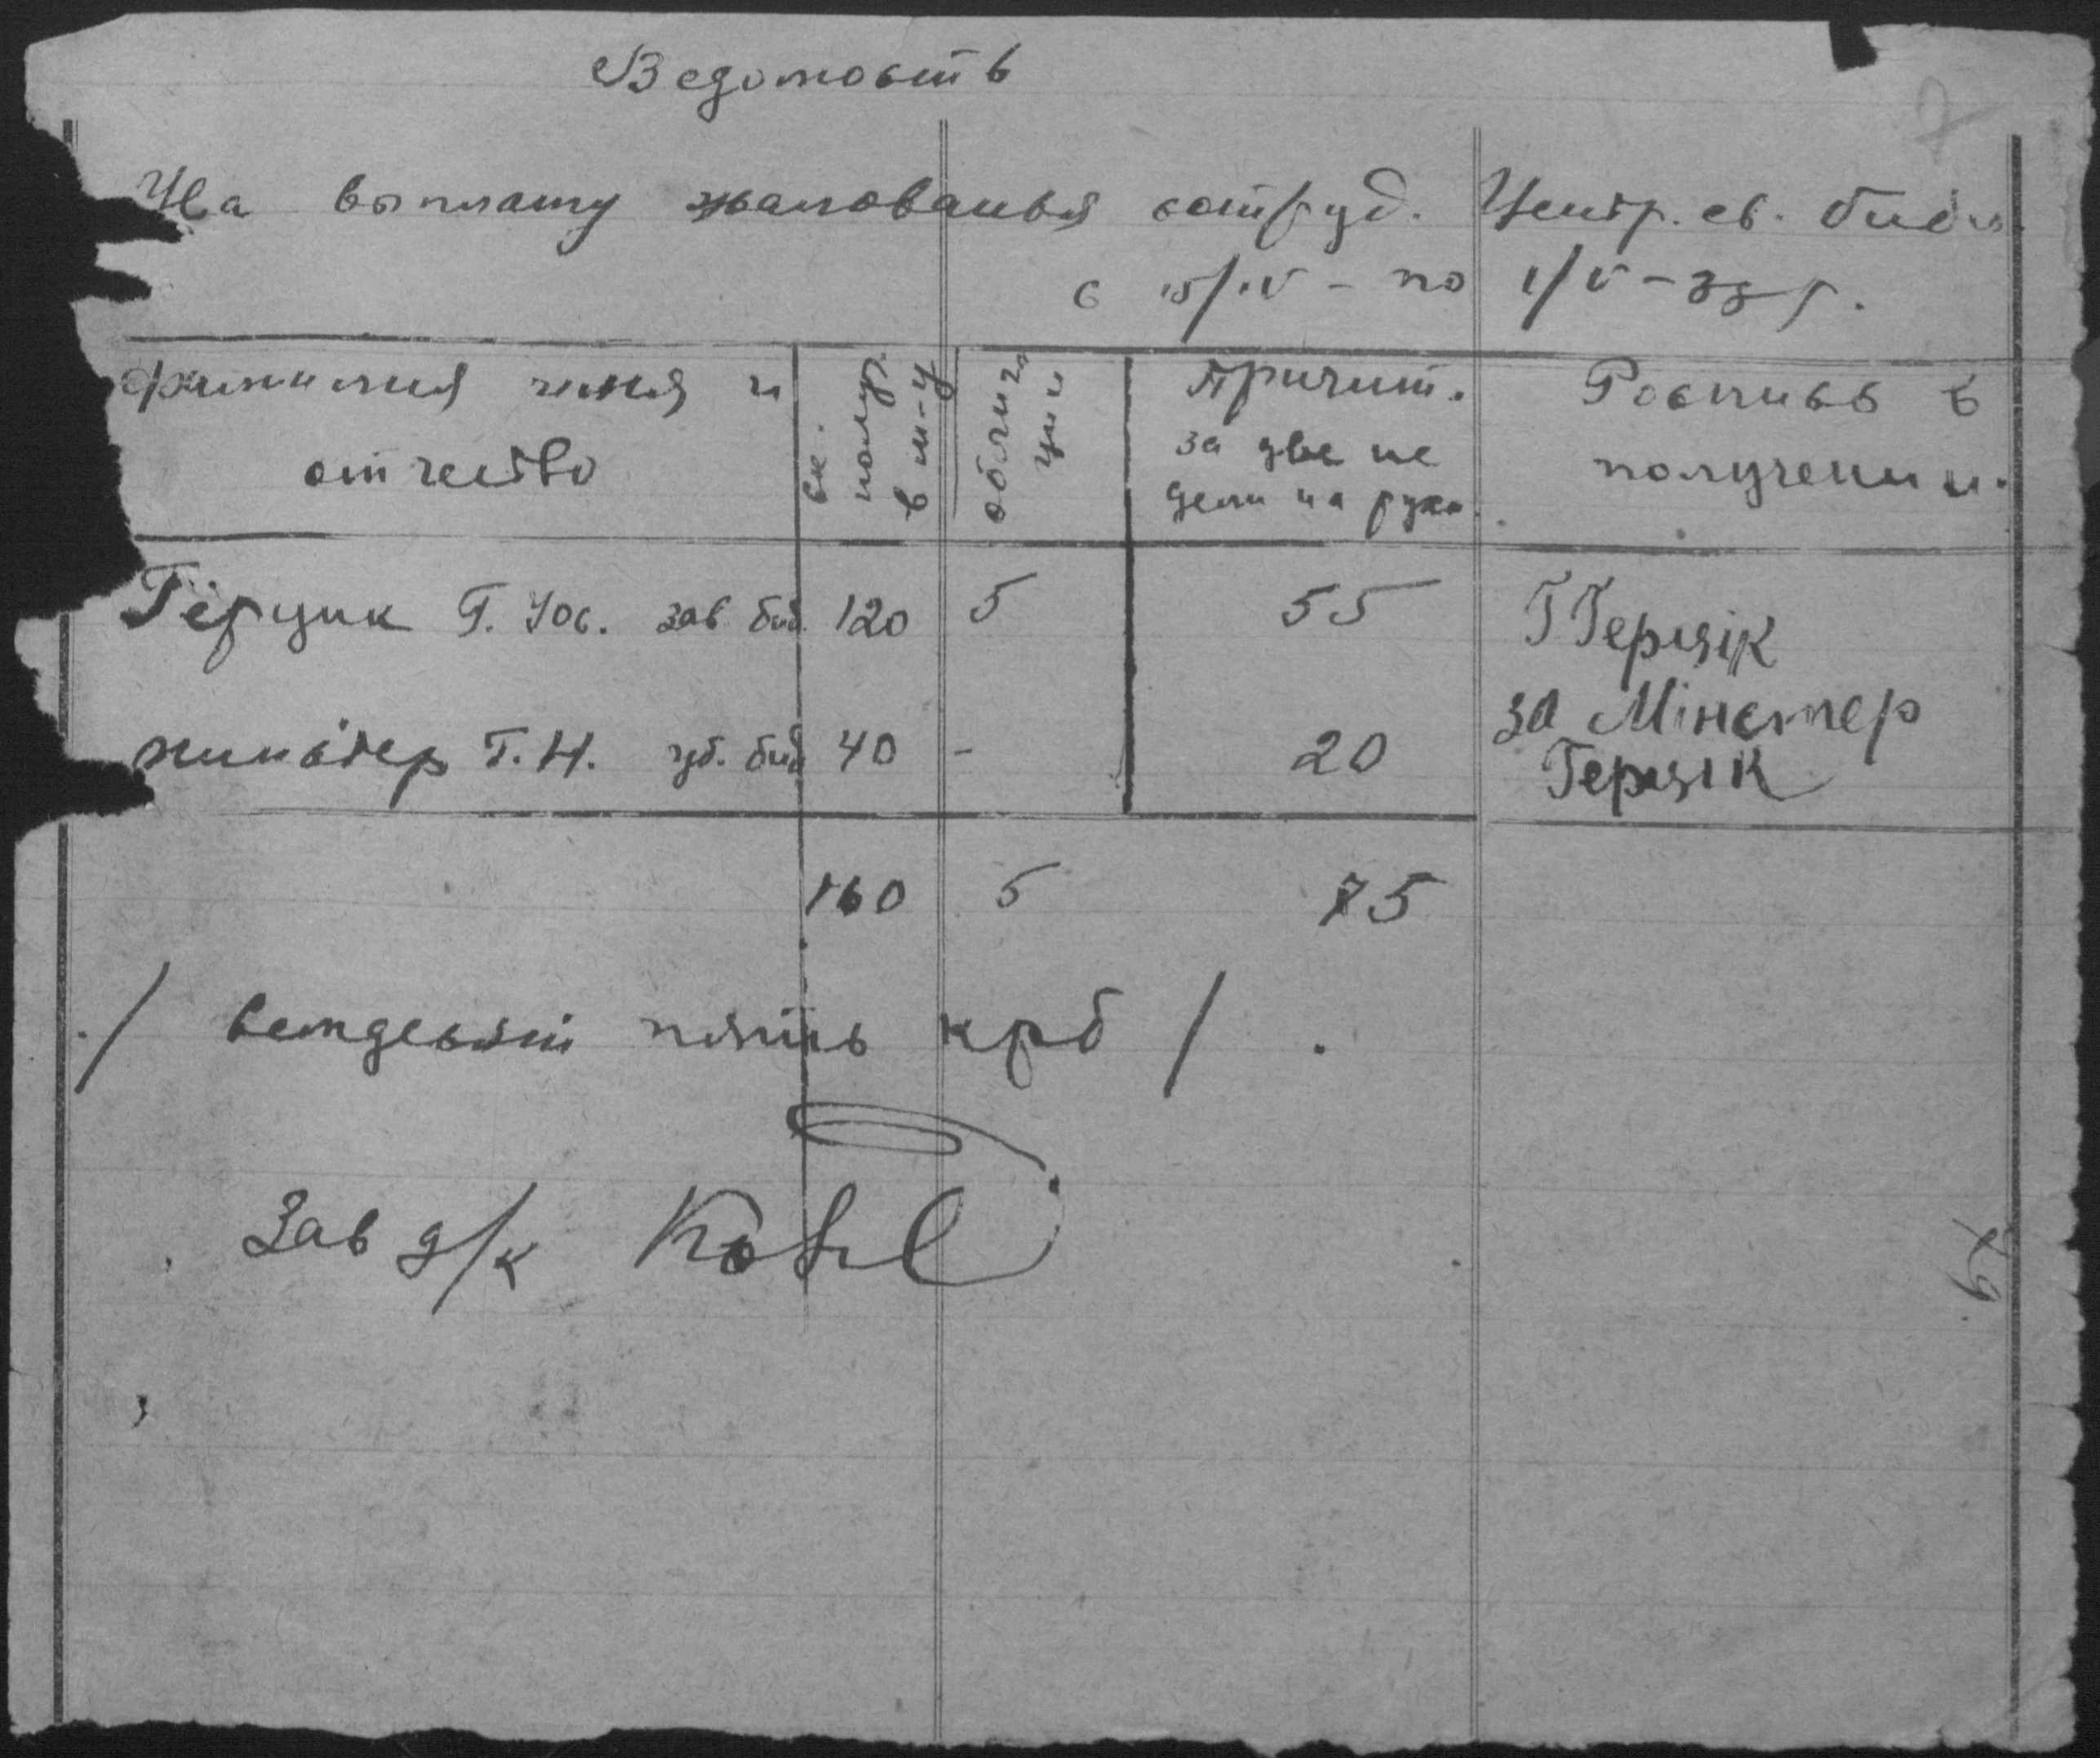 Ведомость
7
На выплату жалованья сотруд. Центр. ев. библ.
с 15/IV - по 1/V - 33 г.
фамилия имя и отчество
ск. получ. в м-ц
облигации
Причит. за две недели на руки.
Роспись в получении.
Герцик Г. Юс. зав биб. 120 5 55 Г Герцік
Минстер Г. Н. уб. биб 40 - 20 за Мінстер
Герцік
160 5 75
/ семдесят пять крб / .
Зав д/к